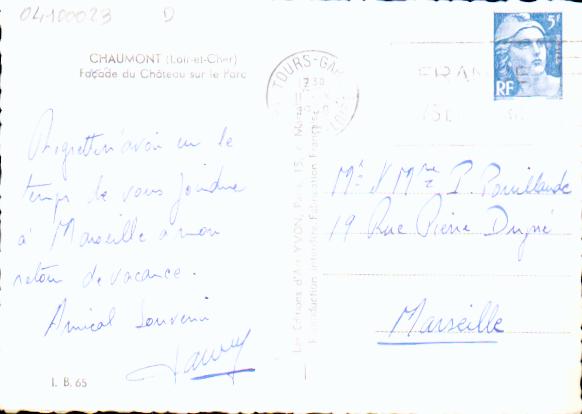 04100023 D
CHAUMONT (Loir-et-Cher)
Façade du Château sur le Parc
TOURS-GA
5F
POSTES
RF
Regrettons n'avoir eu le
temps de vous joindre
à Marseille à mon
retour de vacance.
Amical Souvenir
Mr & Mme P. Pouillaude
19 Rue Pierre Dupré
Marseille
Les Editions d'Art YVON, Paris, 15, r. Martel
Reproduction interdite. Fabrication Française
I. B. 65